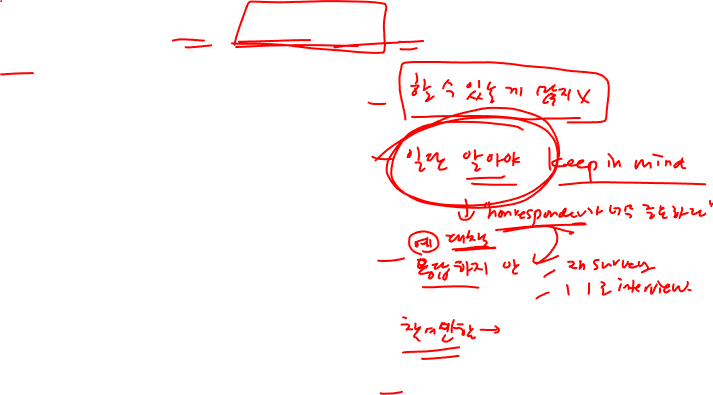 할 수 있는게 많지 X
일단 알아야 keep in mind
↓ "nonresponder가 너무 중요하다"
예 대책
응답하지 안
- 재 survey
- 1 1로 interview.
→